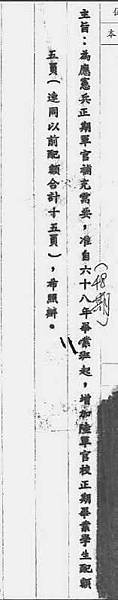 本
主旨：為應憲兵正期軍官補充需要，准自六十八年畢業班起，增加陸軍官校正期畢業學生配額
(48期)
五員（連同以前配額合計十五員），希照辦。